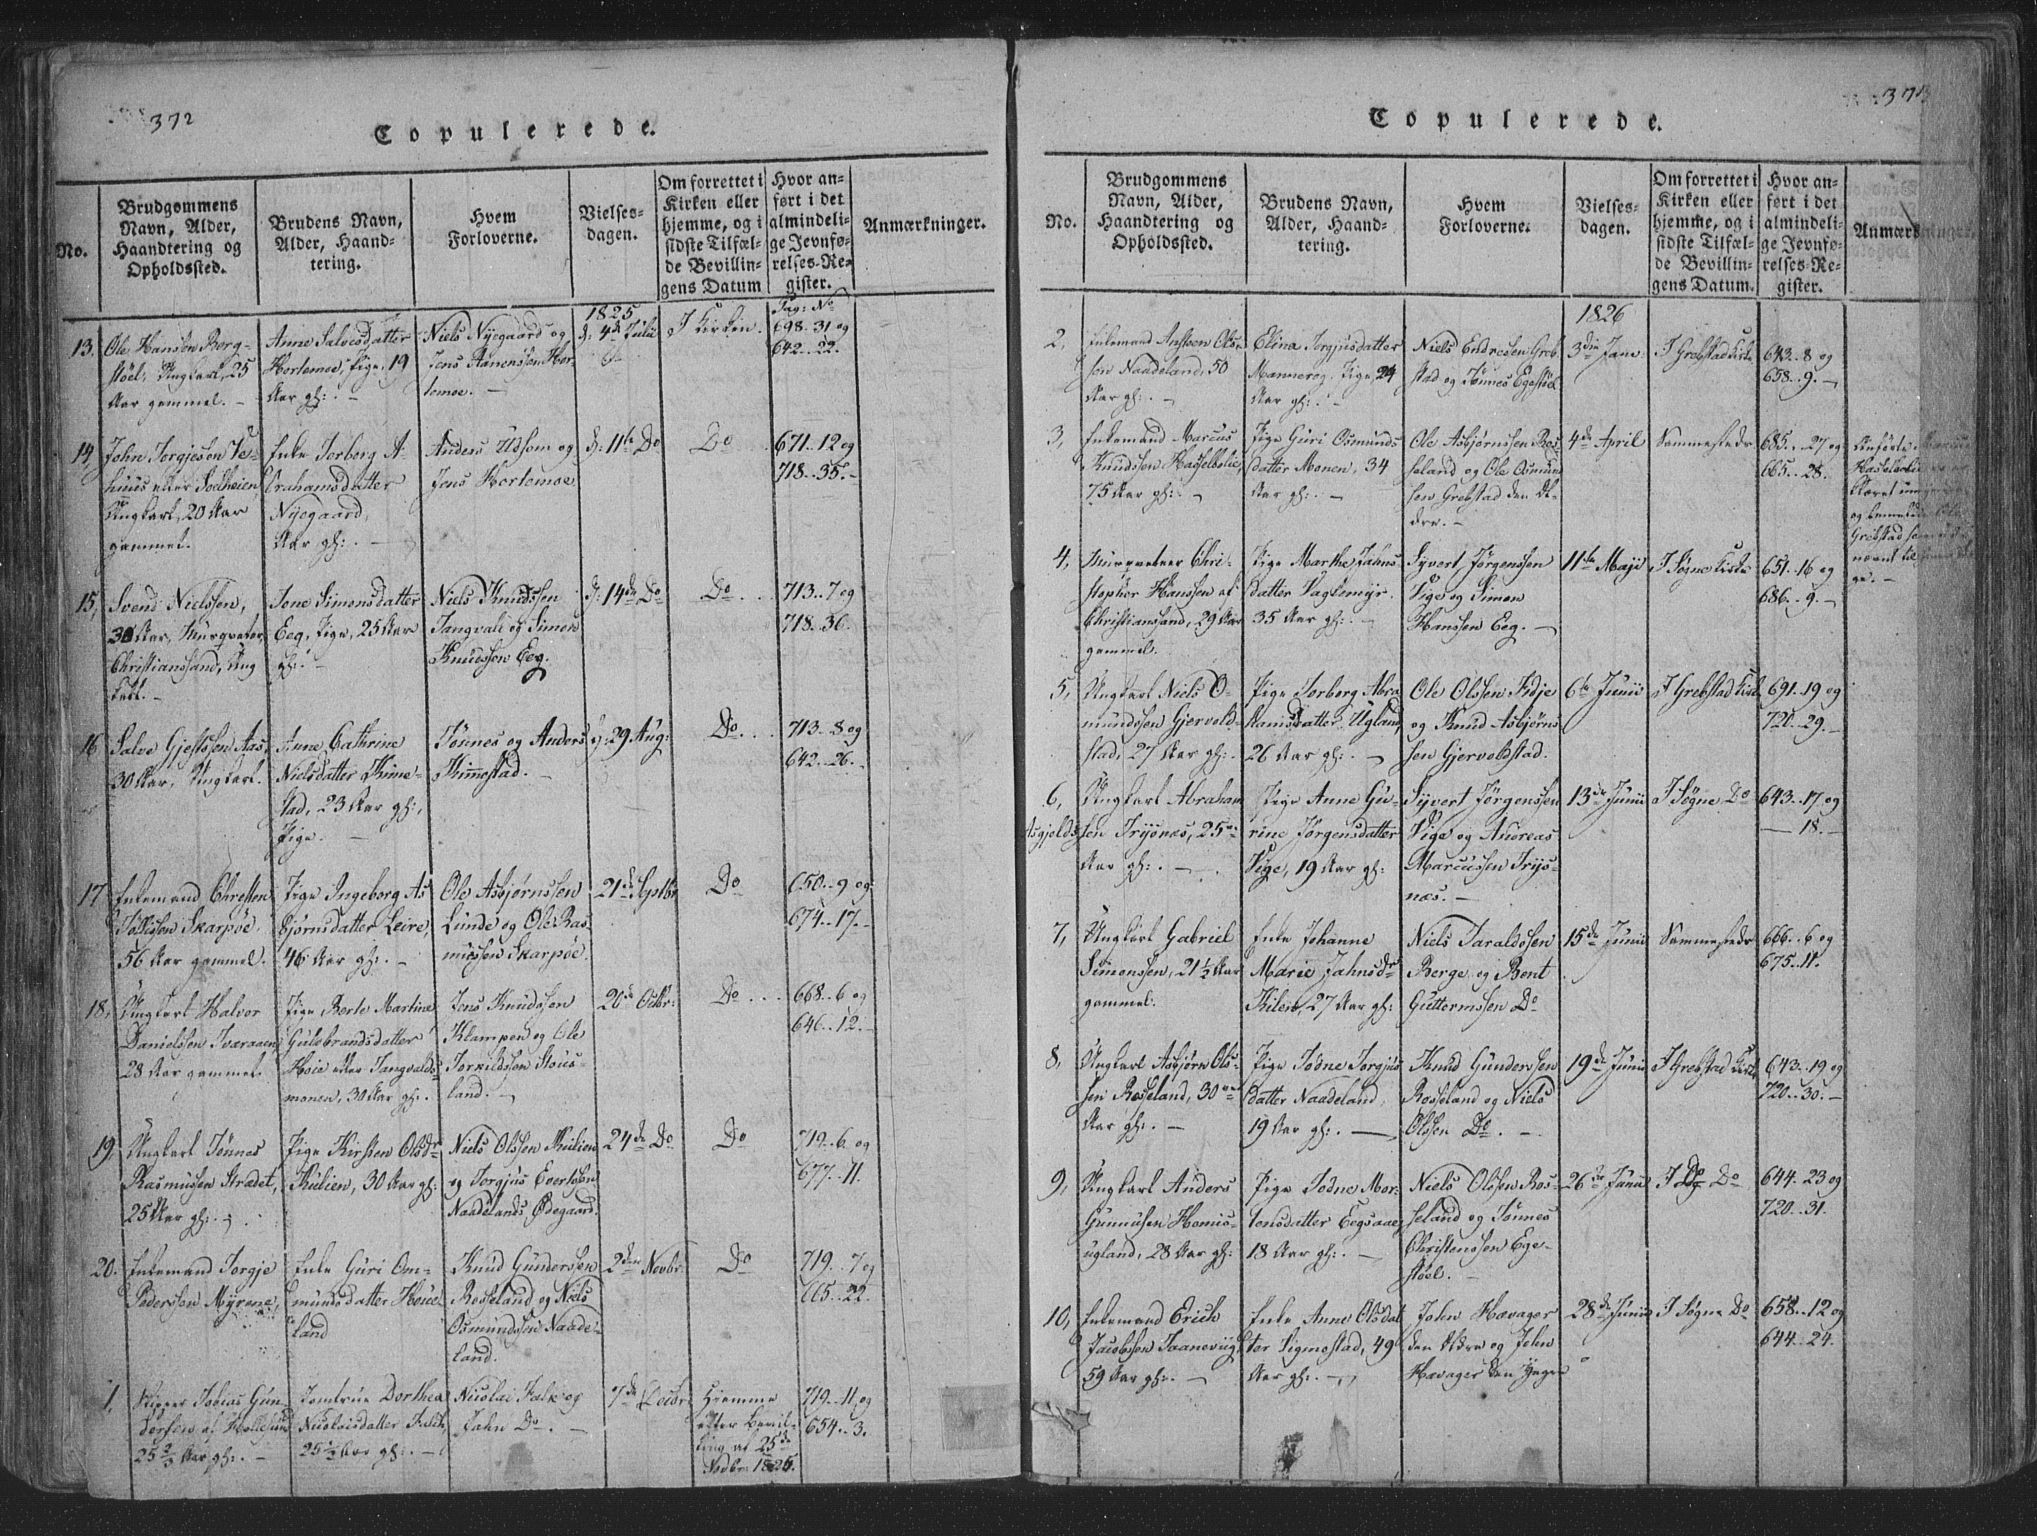 372
Copulerede.
No.
Brudgommens
Navn, Alder,
Haandtering og
Opholdssted.
Brudens Navn,
Alder, Haand-
tering.
Hvem
Forloverne.
Vielses-
dagen.
Om forrettet i
Kirken eller
hjemme, og i
sidste Tilfæl-
de Bevillin-
gens Datum
Hvor an-
ført i det
almindeli-
ge Jevnfø-
relses-Re-
gister.
Anmærkninger.
1825
Pag: No
13.
Ole Hansen Berg-
støel, Ungkarl, 25
Aar gammel. -
Anne Salvesdatter
Hortemoe, Pige, 19
Aar gl: . -
Niels Nyegaard og
Jens Aanensen Hor-
temoe. -
d. 4de Julii
I Kirken.
698..31 og
642..22.
14,
John Torgjesen Ve-
huus eller Solheien
Ungkarl, 20 Aar
gammel.
Enke Torborg A-
brahamsdatter
Nyegaard,
Aar gl: . -
Anders Udsom og
Jens Hortemoe
d: 11te Do
Do
671..12 og
718..35. -
15,
Svend Nielssen,
30 Aar, Murqveter,
Christianssand, Ung
karl. -
Tone Simonsdatter
Eeg, Pige, 25 Aar
gl: . -
Niels Knudssen
Tangvald og Simon
Knudssen Eeg.
d: 14de Do
Do
713..7 og
718..36. -
16
Salve Gjertssen Aas,
30 Aar, Ungkarl.
Anne Cathrine
Nielsdatter Kime-
stad, 23 Aar gl:,
Pige. -
Tönnes og Anders
Kimestad. -
d: 29 Aug:
Do
713..8 og
642..26. -
17
Enkemand Chresten
Tolfssen Skarpøe,
56 Aar gammel.
Pige Ingeborg As
bjørnsdatter Leire,
46 Aar gl: . -
Ole Asbjørnssen
Lunde og Ole Ras-
mussen Skarpøe.
21de Septbr
Do
650..9 og
674..17. -
18,
Ungkarl Halvor
Danielssen Tvaraaen,
28 Aar gammel.
Pige Berte Martine
Gulebrandsdatter
Hoie eller Tangvalds-
monen, 30 Aar gl: .
Jens Knudssen
Klampen og Ole
Torkildssen Stous-
land. -
20de Octbr:
Do
668..6 og
646..12. -
19,
Ungkarl Tönnes
Rasmussen Strædet,
25 Aar gl: . -
Pige Kirsten Olsdr
Kulien, 30 Aar gl:
Niels Olssen Kulien
og Torgjus Evertssen
Naadelands Ødegaard.
24de Do
Do
719..6. og
677..11.
20.
Enkemand Torgje
Pederssen Myrene,
Enke Guri Om-
mundsdatter House-
land
Knud Gunderssen
Rosseland og Niels
Osmundssen Naade-
land.
2den Novbr.
Do
719..7 og
665..22.
1,
Skipper Tobias Gun-
dersen af Hellesund
25 2/3 Aar gl: . -
Jomfrue Dorthea
Nicolaisdatter Falck,
25 1/2 Aar gl: . -
Nicolai Falk og
Jahn Do . -
7de Decbr
Hjemme
efter Bevil-
ling af 25de
Novbr 1825.
719..11. og
654..3.
373
Copulerede.
No.
Brudgommens
Navn, Alder,
Haandtering og
Opholdssted.
Brudens Navn,
Alder, Haand-
tering.
Hvem
Forloverne.
Vielses-
dagen.
Om forrettet i
Kirken eller
hjemme, og i
sidste Tilfæl-
de Bevillin-
gens Datum.
Hvor an-
ført i det
almindeli-
ge Jevnfø-
relses-Re-
gister.
Anmærkninger.
1826
2,
Enkemand Anstøn Ols-
sen Naadeland, 50
Aar gl: . -
Elina Torgjusdatter
Mannerog, Pige 24
Aar gl: . -
Niels Endresen Greb-
stad og Tønnes Egestøel
3die Janr
I Grebstad Kirke
643..8 og
658..9. -
3,
Enkemand Marcus
Knudssen Hasselbolie
75 Aar gl: . -
Pige Guri Osmunds
datter Monen, 34
Aar gl: . -
Ole Asbjørnssen Ros-
seland og Ole Osmund-
sen Grebstad den Æl-
dre. -
4de April
Sammestedr
685..27 og
665..28.
Anførte
Hasselbolie
og
Grebstad
nævnt til
ge. -
4,
Murqveteer Chri-
stopher Hanssen af
Christianssand, 29 Aar
gammel.
Pige Marthe Jahns-
datter Vagtemyr.
35 Aar gl: . -
Syvert Jørgenssen
Vige og Simon
Hanssen Eeg. -
11te Maji
I Søgne Kirke
651..16 og
686..9. -
5,
Ungkarl Niels O-
mundssen Gjervold-
stad, 27 Aar gl: .
Pige Torborg Abra
hamsdatter Ugland,
26 Aar gl: . -
Ole Olssen Kidje
og Knud Asbjørns
sen Gjervoldstad.
6te Junii
I Grebstad Kirke
691..19 og
720..29. -
6,
Ungkarl Abraham
Asgjelds-
sen Trysnæs, 25
Aar gl: . -
Pige Anne Gu-
rine Jørgensdatter
Vige, 19 Aar gl:
Syvert Jørgenssen
Vige og Andreas
Marcussen Trys-
næs. -
13de Junii
I Søgne Do
643..17. og
— 18. -
7,
Ungkarl Gabriel
Simonssen, 21 1/2 Aar
gammel.
Enke Johanne
Marie Jahnsdr
Kilen, 27 Aar gl:
Niels Taraldssen
Berge og Bent
Guttormssen Do
15de Junii
Sammestedr
666..6 og
675..11.
8,
Ungkarl Asbjørn Ols-
sen Rosseland, 30
Aar gl: . -
Pige Todne Torgjus
datter Naadeland,
19 Aar gl: . —
Knud Gunderssen
Rosseland og Niels
Olssen Do. . -
19de Junii
I Grebstad Kirke
643..19 og
720..30. -
9,
Ungkarl Anders
Gunnusen Homis-
ugland, 28 Aar gl:
Pige Todne Mor-
tensdatter Eegsaae,
18 Aar gl: . -
Niels Olssen Ros-
seland og Tönnes
Christenssen Ege-
støel. -
26de Junii
I Do Do
644..23 og
720..31.
10,
Enkemand Erich
Jacobssen Taanevig,
59 Aar gl: . -
Enke Anne Olsdat
ter Sigmestad, 49
Aar gl: . -
John Høvager
den Ældre og John
Høvager den Yngre
28de Junii
I Søgne Do
658..12 og
644..24.